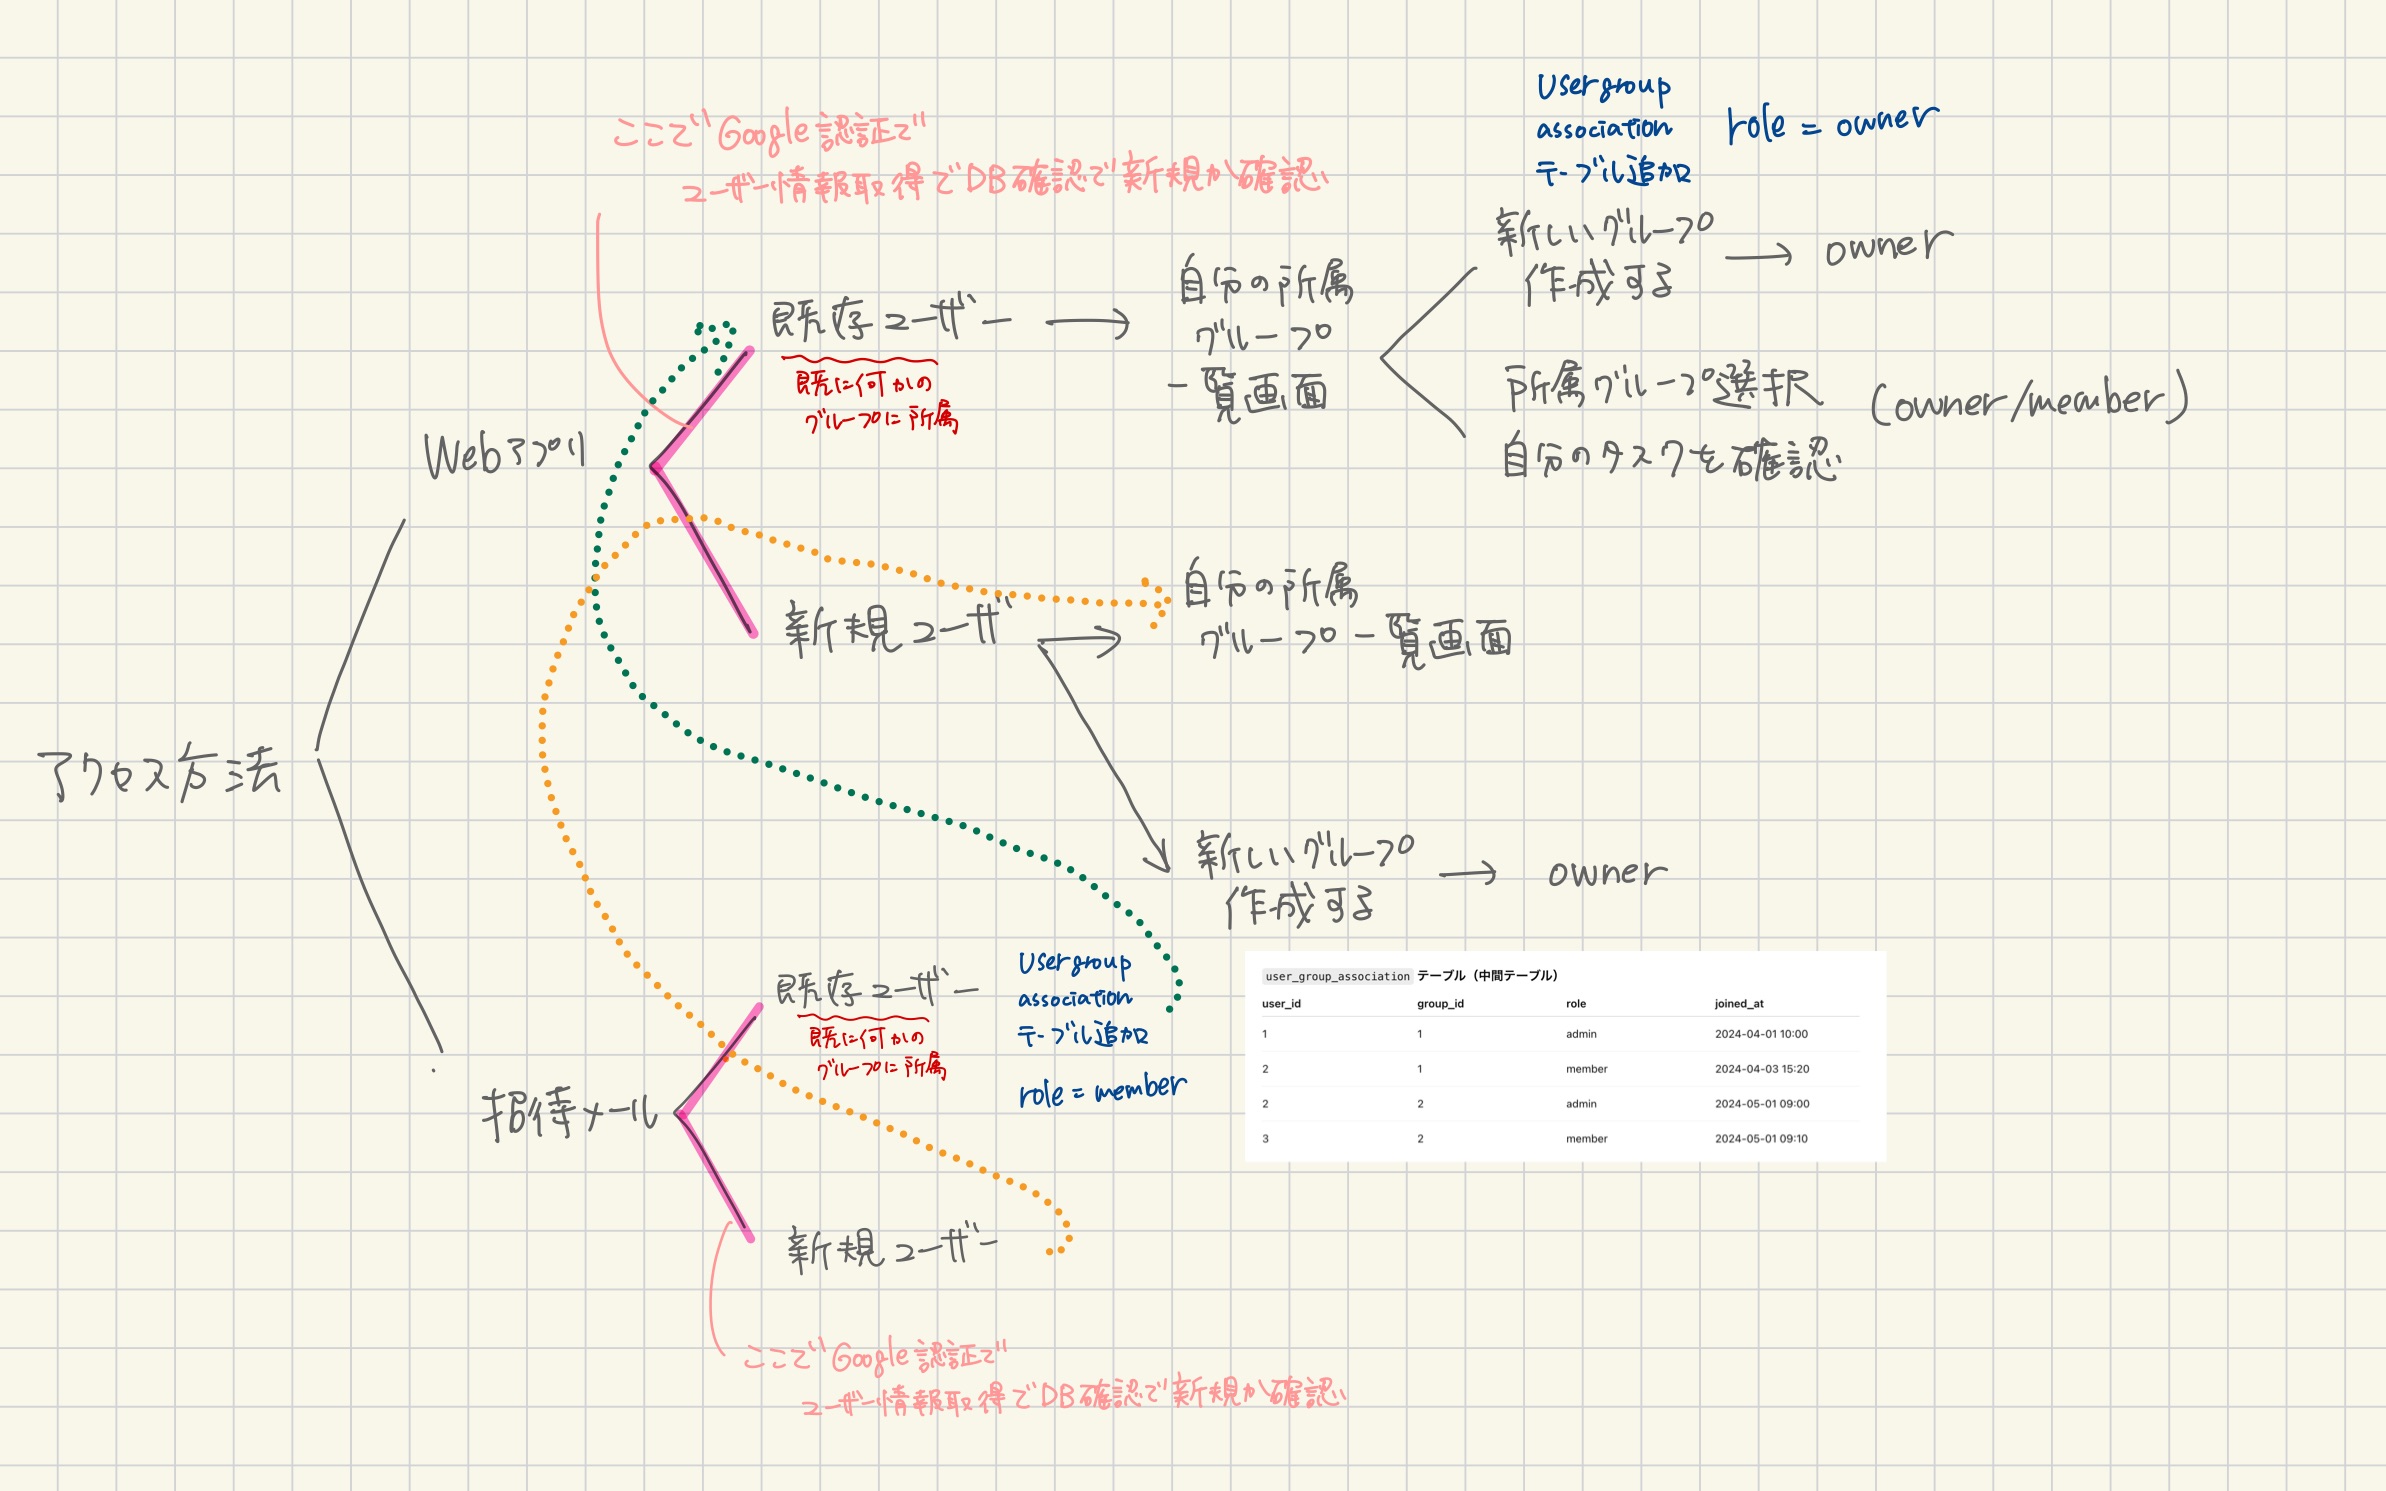 Usergroup
association
テーブル追加
role = owner
ここでGoogle認証で
ユーザー情報取得でDB確認で新規か確認
新しいグループ
作成する
owner
自分の所属
グループ
一覧画面
既存ユーザー
既に何かの
グループに所属
所属グループ選択
自分のタスクを確認
(owner/member)
Webアプリ
自分の所属
グループ一覧画面
新規ユーザー
アクセス方法
新しいグループ
作成する
owner
既存ユーザー
既に何かの
グループに所属
Usergroup
association
テーブル追加
role = member
user_group_association テーブル（中間テーブル）
user_id group_id role joined_at
1 1 admin 2024-04-01 10:00
2 1 member 2024-04-03 15:20
2 2 admin 2024-05-01 09:00
3 2 member 2024-05-01 09:10
招待メール
新規ユーザー
ここでGoogle認証で
ユーザー情報取得でDB確認で新規か確認